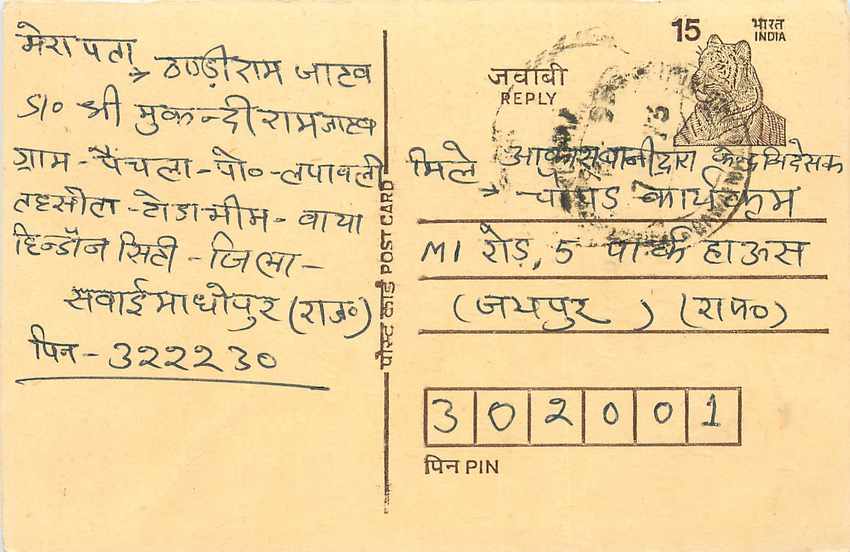 मेरा पता → ठण्डीराम जाटव
S/० श्री मुकन्दीराम जाटव
ग्राम - पैंचला - पो० - लपावली
तहसील - टोडाभीम - वाया
हिन्डौन सिटी - जिला -
सवाई माधोपुर (राज०)
पिन - 322230
पोस्ट कार्ड POST CARD
15 भारत
INDIA
जवाबी
REPLY
मिले → आकाशवानी द्वारा केन्द्र निदेसक
कार्यक्रम
MI रोड, 5 पार्क हाऊस
(जयपुर) (राज०)
302001
पिन PIN